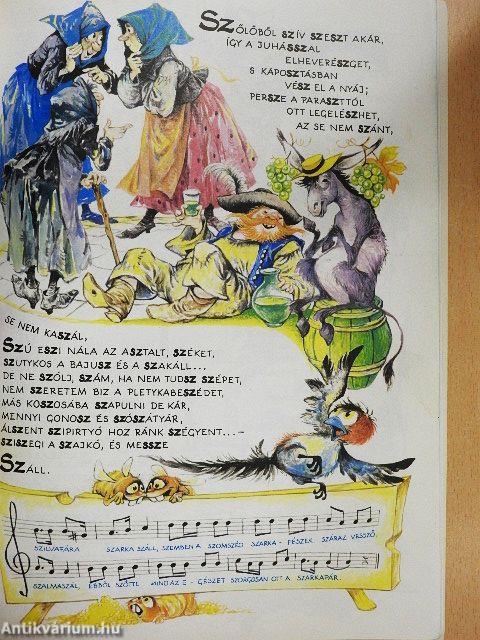 SZŐLŐBŐL SZÍV SZESZT AKÁR,
ÍGY A JUHÁSSZAL
ELHEVERÉSZGET,
S KÁPOSZTÁSBAN
VÉSZ EL A NYÁJ;
PERSZE A PARASZTTÓL
OTT LEGELÉSZHET,
AZ SE NEM SZÁNT,
SE NEM KASZÁL,
SZÚ ESZI NÁLA AZ ASZTALT, SZÉKET,
SZUTYKOS A BAJUSZ ÉS A SZAKÁLL...
DE NE SZÓLJ, SZÁM, HA NEM TUDSZ SZÉPET,
NEM SZERETEM BIZ A PLETYKABESZÉDET,
MÁS KOSZOSÁBA SZAPULNI DE KÁR,
MENNYI GONOSZ ÉS SZÓSZÁTYÁR,
ÁLSZENT SZIPIRTYÓ HOZ RÁNK SZÉGYENT...–
SZISZEGI A SZAJKÓ, ÉS MESSZE
SZÁLL.
SZILVAFÁRA SZARKA SZÁLL, SZEMBEN A SZOMSZÉD SZARKA - FÉSZEK. SZÁRAZ VESSZŐ,
SZALMASZÁL, EBBŐL SZŐTTE MIND AZ E - GÉSZET SZORGOSAN OTT A SZARKAPÁR.
Antikvárium.hu